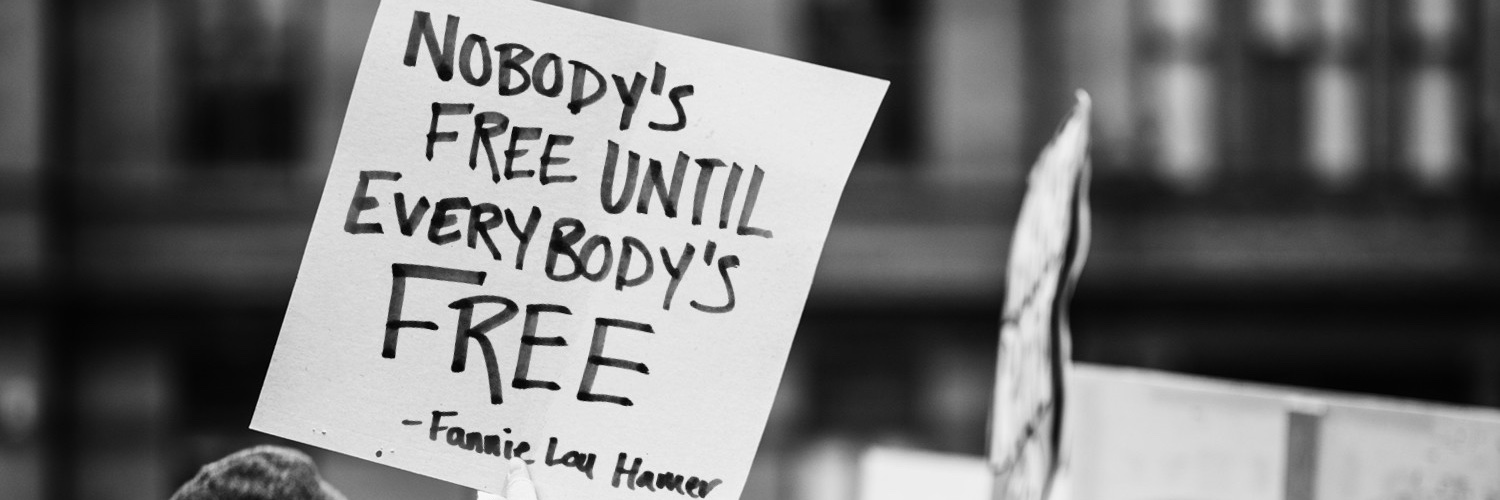 NOBODY'S
FREE UNTIL
EVERYBODY'S
FREE
-Fannie Lou Hamer